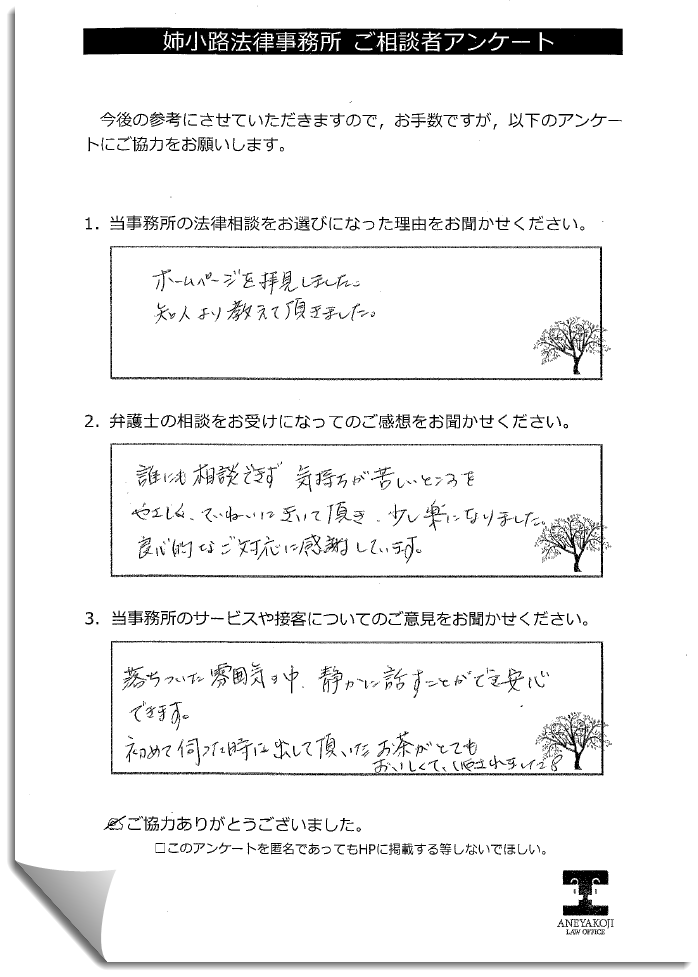 姉小路法律事務所 ご相談者アンケート
今後の参考にさせていただきますので，お手数ですが，以下のアンケー
トにご協力をお願いします。
1．当事務所の法律相談をお選びになった理由をお聞かせください。
ホームページを拝見しました。
知人より教えて頂きました。
2．弁護士の相談をお受けになってのご感想をお聞かせください。
誰にも相談できず 気持ちが苦しいところを
やさしく、ていねいにきいて頂き、少し楽になりました。
良心的なご対応に感謝しています。
3．当事務所のサービスや接客についてのご意見をお聞かせください。
落ちついた雰囲気の中、静かに話すことができ安心
できます。
初めて伺った時に出して頂いたお茶がとても
おいしくて、癒されました
ご協力ありがとうございました。
□このアンケートを匿名であってもHPに掲載する等しないでほしい。
ANEYAKOJI
LAW OFFICE